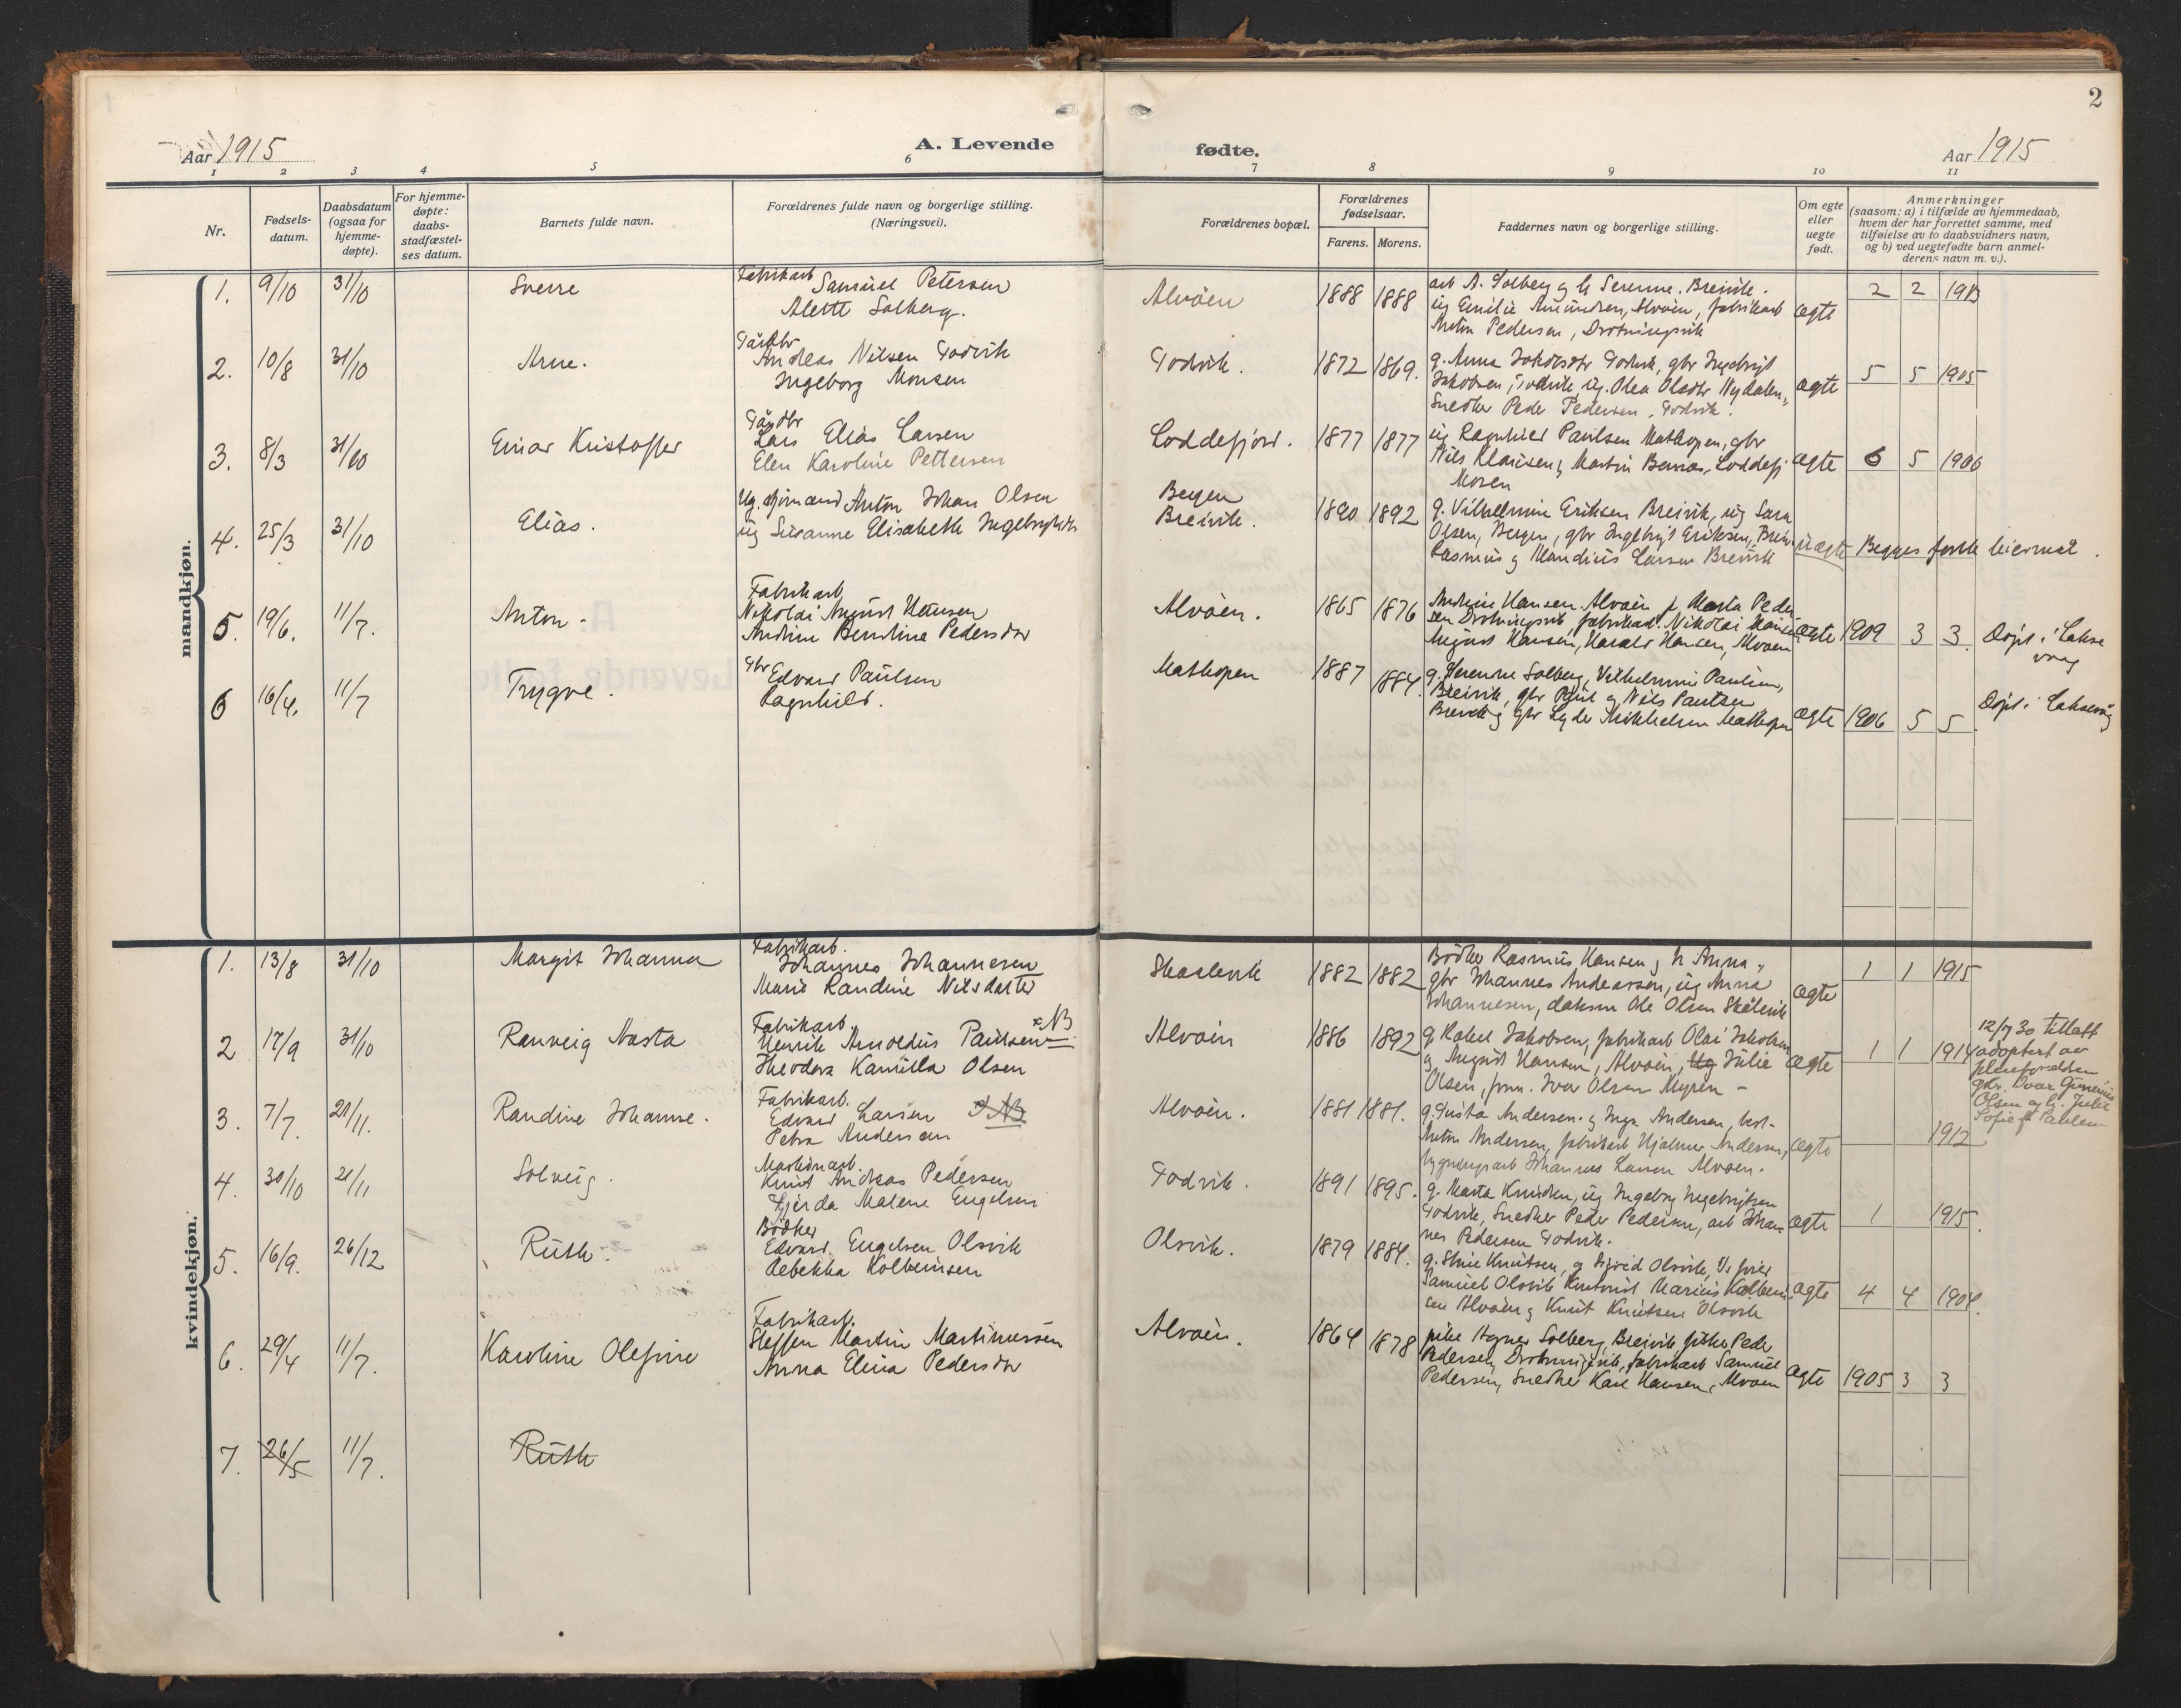 2
Aar 1915
A. Levende
fødte.
Aar 1915
1 2 3 4 5 6 7 8 9 10 11
Nr.
Fødsels-
datum.
Daabsdatum
(ogsaa for
hjemme-
døpte).
For hjemme-
døpte:
daabs-
stadfæstel-
ses datum.
Barnets fulde navn.
Forældrenes fulde navn og borgerlige stilling.
(Næringsvei).
Forældrenes bopæl.
Forældrenes
fødselsaar.
Farens. Morens.
Faddernes navn og borgerlige stilling.
Om egte
eller
uegte
født.
Anmerkninger
(saasom: a) i tilfælde av hjemmedaab,
hvem der har forrettet samme, med
tilføielse av to daabsvidners navn,
og b) ved uegtefødte barn anmel-
derens navn m. v.).
mandkjøn.
1. 9/10 31/10 Sverre
Fabrikarb
Samuel Petersen
Alette Solberg.
Alvøen 1888 1888
arb A. Solberg g h Serenne. Breivik.
ug Emilie Amundsen, Alvøen, fabrikarb
Anton Pedersen, Drotningsvik
ægte 2 2 1913
2. 10/8 31/10 Arne.
Andeas Nilsen Godvik
Ingeborg Monsen
Godvik. 1872 1869.
g. Anna Jakobsdtr Godvik, gbr Ingebrigt
Jakobsen, Godvik ug. Olea Olsdtr Nydalen,
Snedker Peder Pedersen, Godvik.
ægte 5 5 1905
3. 8/3 31/10 Einar Kristoffer
Lars Elias Larsen
Elen Karoline Pettersen
Loddefjord. 1877 1877
ug Ragnhild Paulsen Mathopen, gbr
Nils Klausen, Martin Loddefj.
ægte 6 5 1906
4. 25/3 31/10 Elias.
Ug. sjømand Anton Johan Olsen
ug Susanne Elisabeth Ingebrigtsdtr
Bergen
Breivik. 1890 1892
g. Vilhelmine Eriksen Breivik, ug Sara
Olsen, Bergen, gbr Ingebrigt Eriksen, Breiv.
Rasmus g Klaudius Larsen Breivik
uægte Begges første leiermaal.
5. 19/6. 11/7. Anton.
Fabrikarb
Nikolai August Hansen
Andrine Berntine Pedersdtr
Alvøen. 1865 1876
Andrine Hansen. Alvøen, p Marta Peder
sen Drotningsvik, fabrikarb. Nikolai Hansen
August Hansen, Harald Hansen, Alvøen
ægte 1909 3 3. Døpt i Lakse
vaag
6 16/4. 11/7 Trygve.
Gbr Edvard Paulsen
Ragnhild.
Mathopen 1887 1884.
g. Serenne Solberg, Vilhelmine Paulsen,
Breivik, gbr Poul g Nils Paulsen
Breivik g gbr Lyder Mikkelsen Mathopen
ægte 1906 5 5. Døpt i Laksevåg
kvindekjøn.
1. 13/8 31/10 Margit Johanna
Fabrikarb.
Johannes Johannesen
Marie Randine Nilsdatter
Skaalevik 1882 1882
Bødker Rasmus Hansen g h Anna,
gbr Johannes Andersen, ug Anna
Johannesen, Ole Olsen Skålevik
ægte 1 1 1915
2 17/9 31/10 Ranveig Nasta
Fabrikarb. NB
Henrik Arnoldus Paulsen
Theodora Kamilla Olsen
Alvøen 1886 1892
g Rakel Jakobsen, fabrikarb Olai Jakobsen
g August Hansen, Alvøen, Ug Julie
Olsen, Ivar Olsen Myren –
ægte 1 1 1914
12/7 30 tillatt
adoptert av
pleieforældrene
gbr. Ivar Gunerius
Olsen og h. Julie
Sofie f. Paulsen
3. 7/7. 21/11. Randine Johanne.
Fabrikarb.
Edvard Larsen NB
Petra Andersen
Alvøen. 1881 1881.
g. Gusta Andersen g Inga Andersen,
Anton Andersen, fabrikarb Hjalmar Andersen,
bygningsarb Johannes Larsen Alvøen.
ægte 1912
4. 30/10 21/11 Solveig.
Maskinarb.
Knut Andreas Pedersen
Gjerda Malene Engelsen
Godvik. 1891 1895.
g. Marta Knudsen, ug Ingeborg Ingebrigtsen
Godvik, Snedker Peder Pedersen, arb Johan
nes Pedersen Godvik.
ægte 1 1915.
5. 16/9. 26/12 Ruth.
Bødker
Edvard Engelsen Olsvik
Rebekka Kolbeinsen
Olsvik. 1879 1884.
g. Stine Knutsen, g Sigrid Olsvik,
Samuel Olsvik Marius Kolbein
sen Alvøen g Knut Knutsen Olsvik
ægte 4 4 1904.
6. 29/4 11/7. Karoline Olefine
Fabrikarb.
Steffen Martin Martinussen
Anna Elina Pedersdtr
Alvøen. 1864 1878
pike Agnes Solberg, Breivik, fisker Peder
Pedersen, Drotningsvik, fabrikarb Samuel
Pedersen, Snedker Karl Hansen, Alvøen
ægte 1905 3 3
7. 26/5 11/7. Ruth